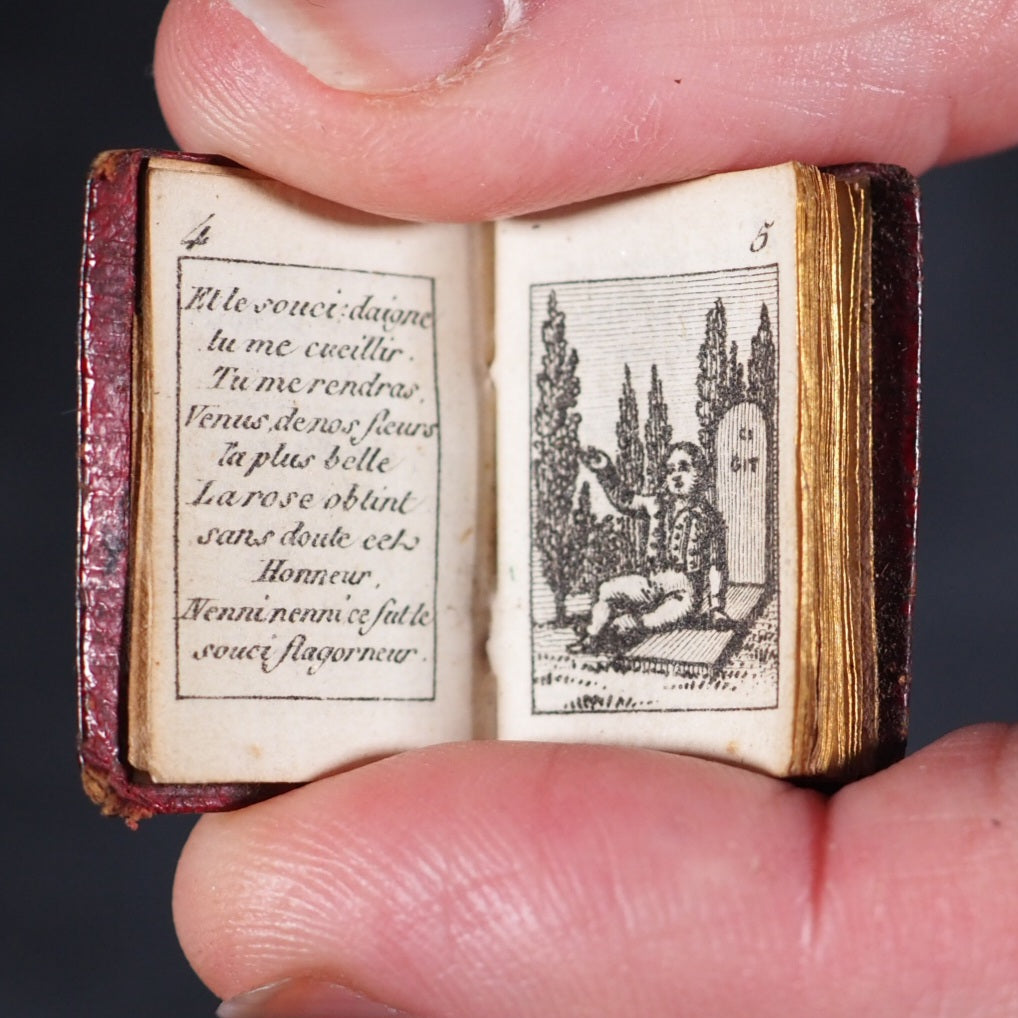 4
Et le souci: daigne
tu me cueillir.
Tu me rendras,
Venus, de nos fleurs
la plus belle
La rose obtint
sans doute cet
Honneur,
Nenni nenni ce fut le
souci flagorneur.
5
CI
GIT